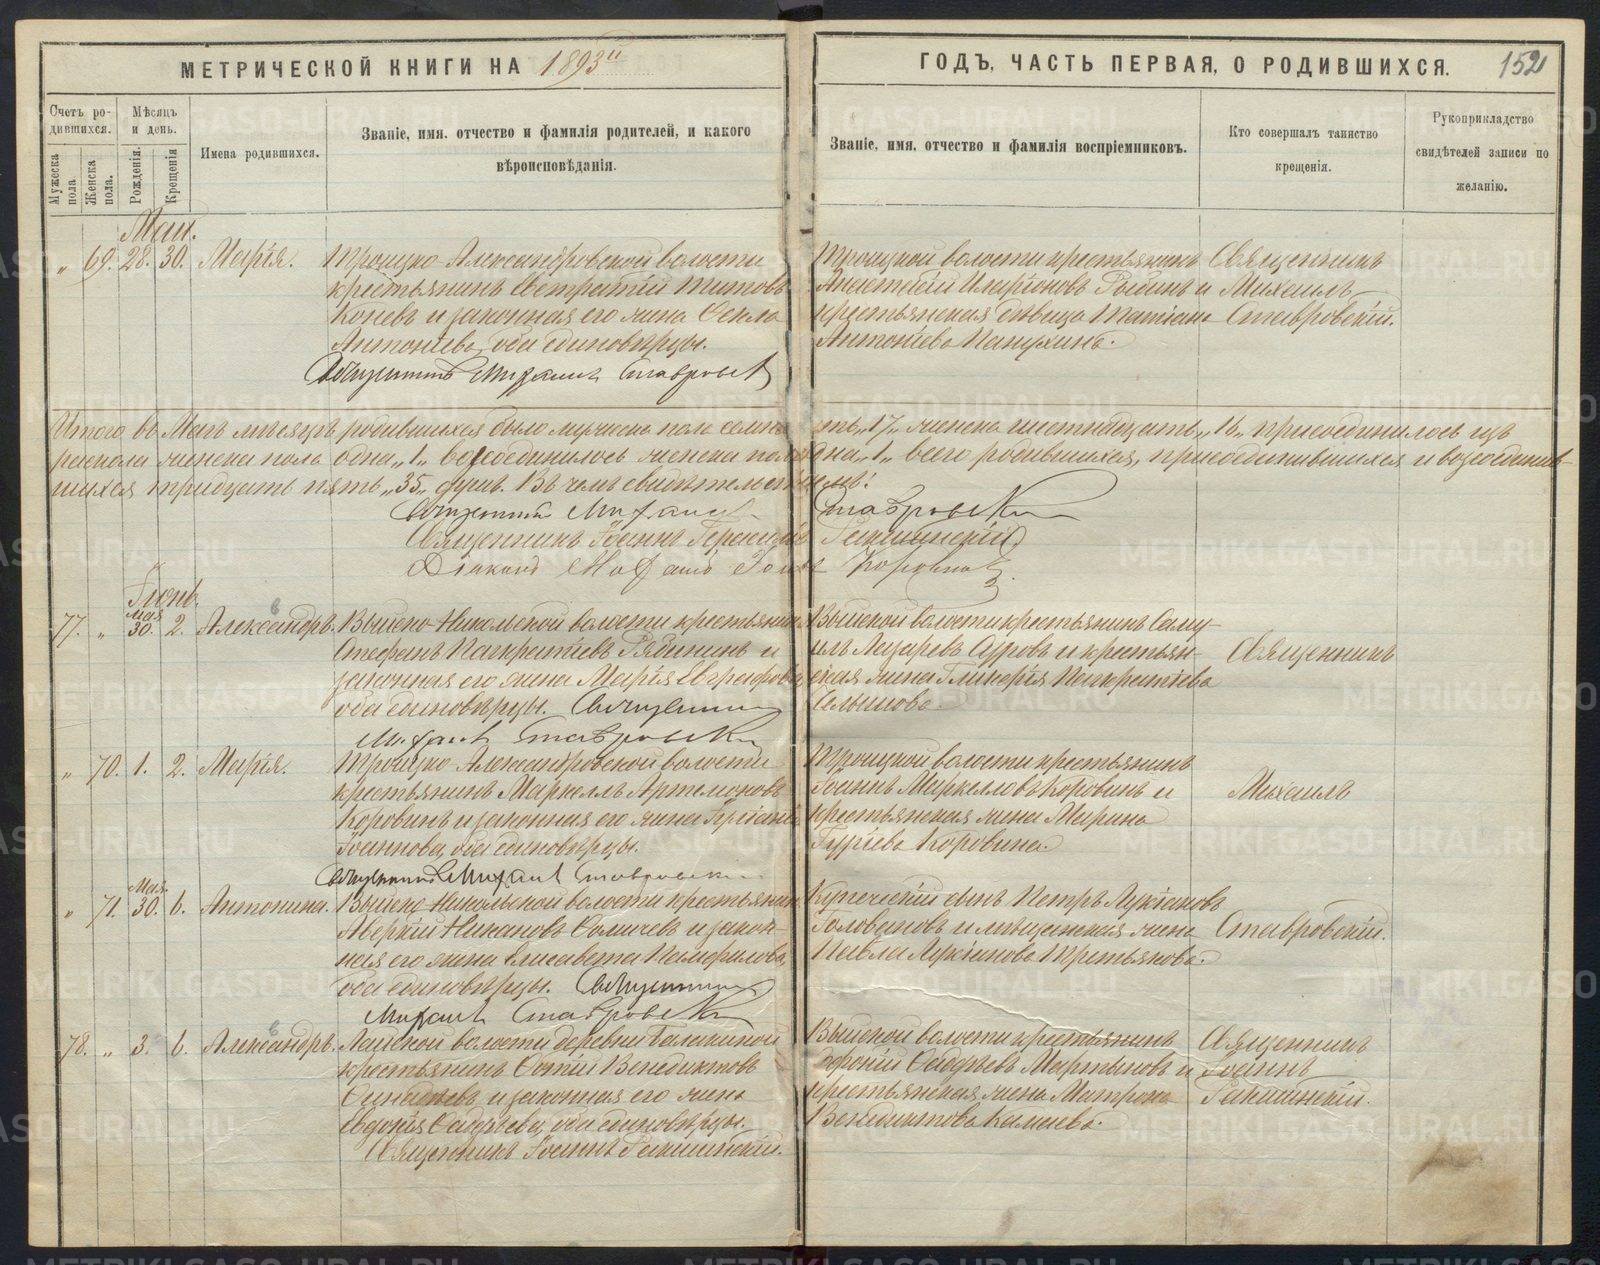 МЕТРИЧЕСКОЙ КНИГИ НА 1893й
ГОДЪ, ЧАСТЬ ПЕРВАЯ, О РОДИВШИХСЯ. 152
Счетъ родившихся.
Мужеска пола
Женска пола.
Мѣсяцъ и день.
Рожденія.
Крещенія
Имена родившихся.
Званіе, имя, отчество и фамилія родителей, и какого
вѣроисповѣданія.
Званіе, имя, отчество и фамилія воспріемниковъ.
Кто совершалъ таинство
крещенія.
Рукоприкладство
свидѣтелей записи по
желанію.
Май.
„ 69. 28. 30. Марія.
Троицко-Александровской волости
крестьянинъ Евстратій Титовъ
Коневъ и законная его жена Ѳекла
Антоніева, оба единовѣрцы.
Священникъ Михаилъ Ставровскій
Троицкой волости крестьянинъ
Иларіоновъ и
крестьянская дѣвица
Антоніева
Священникъ
Михаилъ
Ставровскій.
Итого въ Маѣ мѣсяцѣ родившихся было мужеска пола „17„ женска шестнадцать „16„ присоединилось изъ
раскола женска пола одна „1„ возсоединилось женска пола одна „1„ всего родившихся, присоединившихся и возсоединив-
шихся тридцать пять „35„ душъ. Въ чемъ свидѣтельствуемъ:
Священникъ Михаилъ Ставровскій
Священникъ Іоаннъ
Діаконъ
Іюнь.
77. „ Мая 30. 2. Александръ.
Выйско-Никольской волости крестьянинъ
Стефанъ Панкратіевъ Рябининъ и
законная его жена Марія Евграфова
оба единовѣрцы. Священникъ
Михаилъ Ставровскій
Выйской волости крестьянинъ Саму-
илъ Лазаревъ и крестьян-
ская жена Гликерія Панкратіева
Священникъ
„ 70. 1. 2. Марія.
Троицко-Александровской волости
крестьянинъ Маркеллъ Артемоновъ
Коровинъ и законная его жена
Іоаннова, оба единовѣрцы.
Священникъ Михаилъ Ставровскій
Троицкой волости крестьянинъ
Іоаннъ Маркелловъ Коровинъ и
крестьянская жена Марина
Гуріева Коровина.
Михаилъ
„ 71. Мая 30. 6. Антонина.
Выйско-Никольской волости крестьянинъ
Аверкій и закон-
ная его жена Елисавета Памфилова,
оба единовѣрцы. Священникъ
Михаилъ Ставровскій
Купеческій сынъ Петръ Лукіановъ
Головановъ и мѣщанская жена
Павла Лукіанова Третьякова.
Ставровскій.
78. „ 3. 6. Александръ.
Лайской волости деревни Балакиной
крестьянинъ Венедиктовъ
и законная его жена
Евдокія, оба единовѣрцы.
Священникъ Іоаннъ
Выйской волости крестьянинъ
Мартыновъ и
крестьянская жена Матрона
Венедиктова Камаева.
Священникъ
Іоаннъ